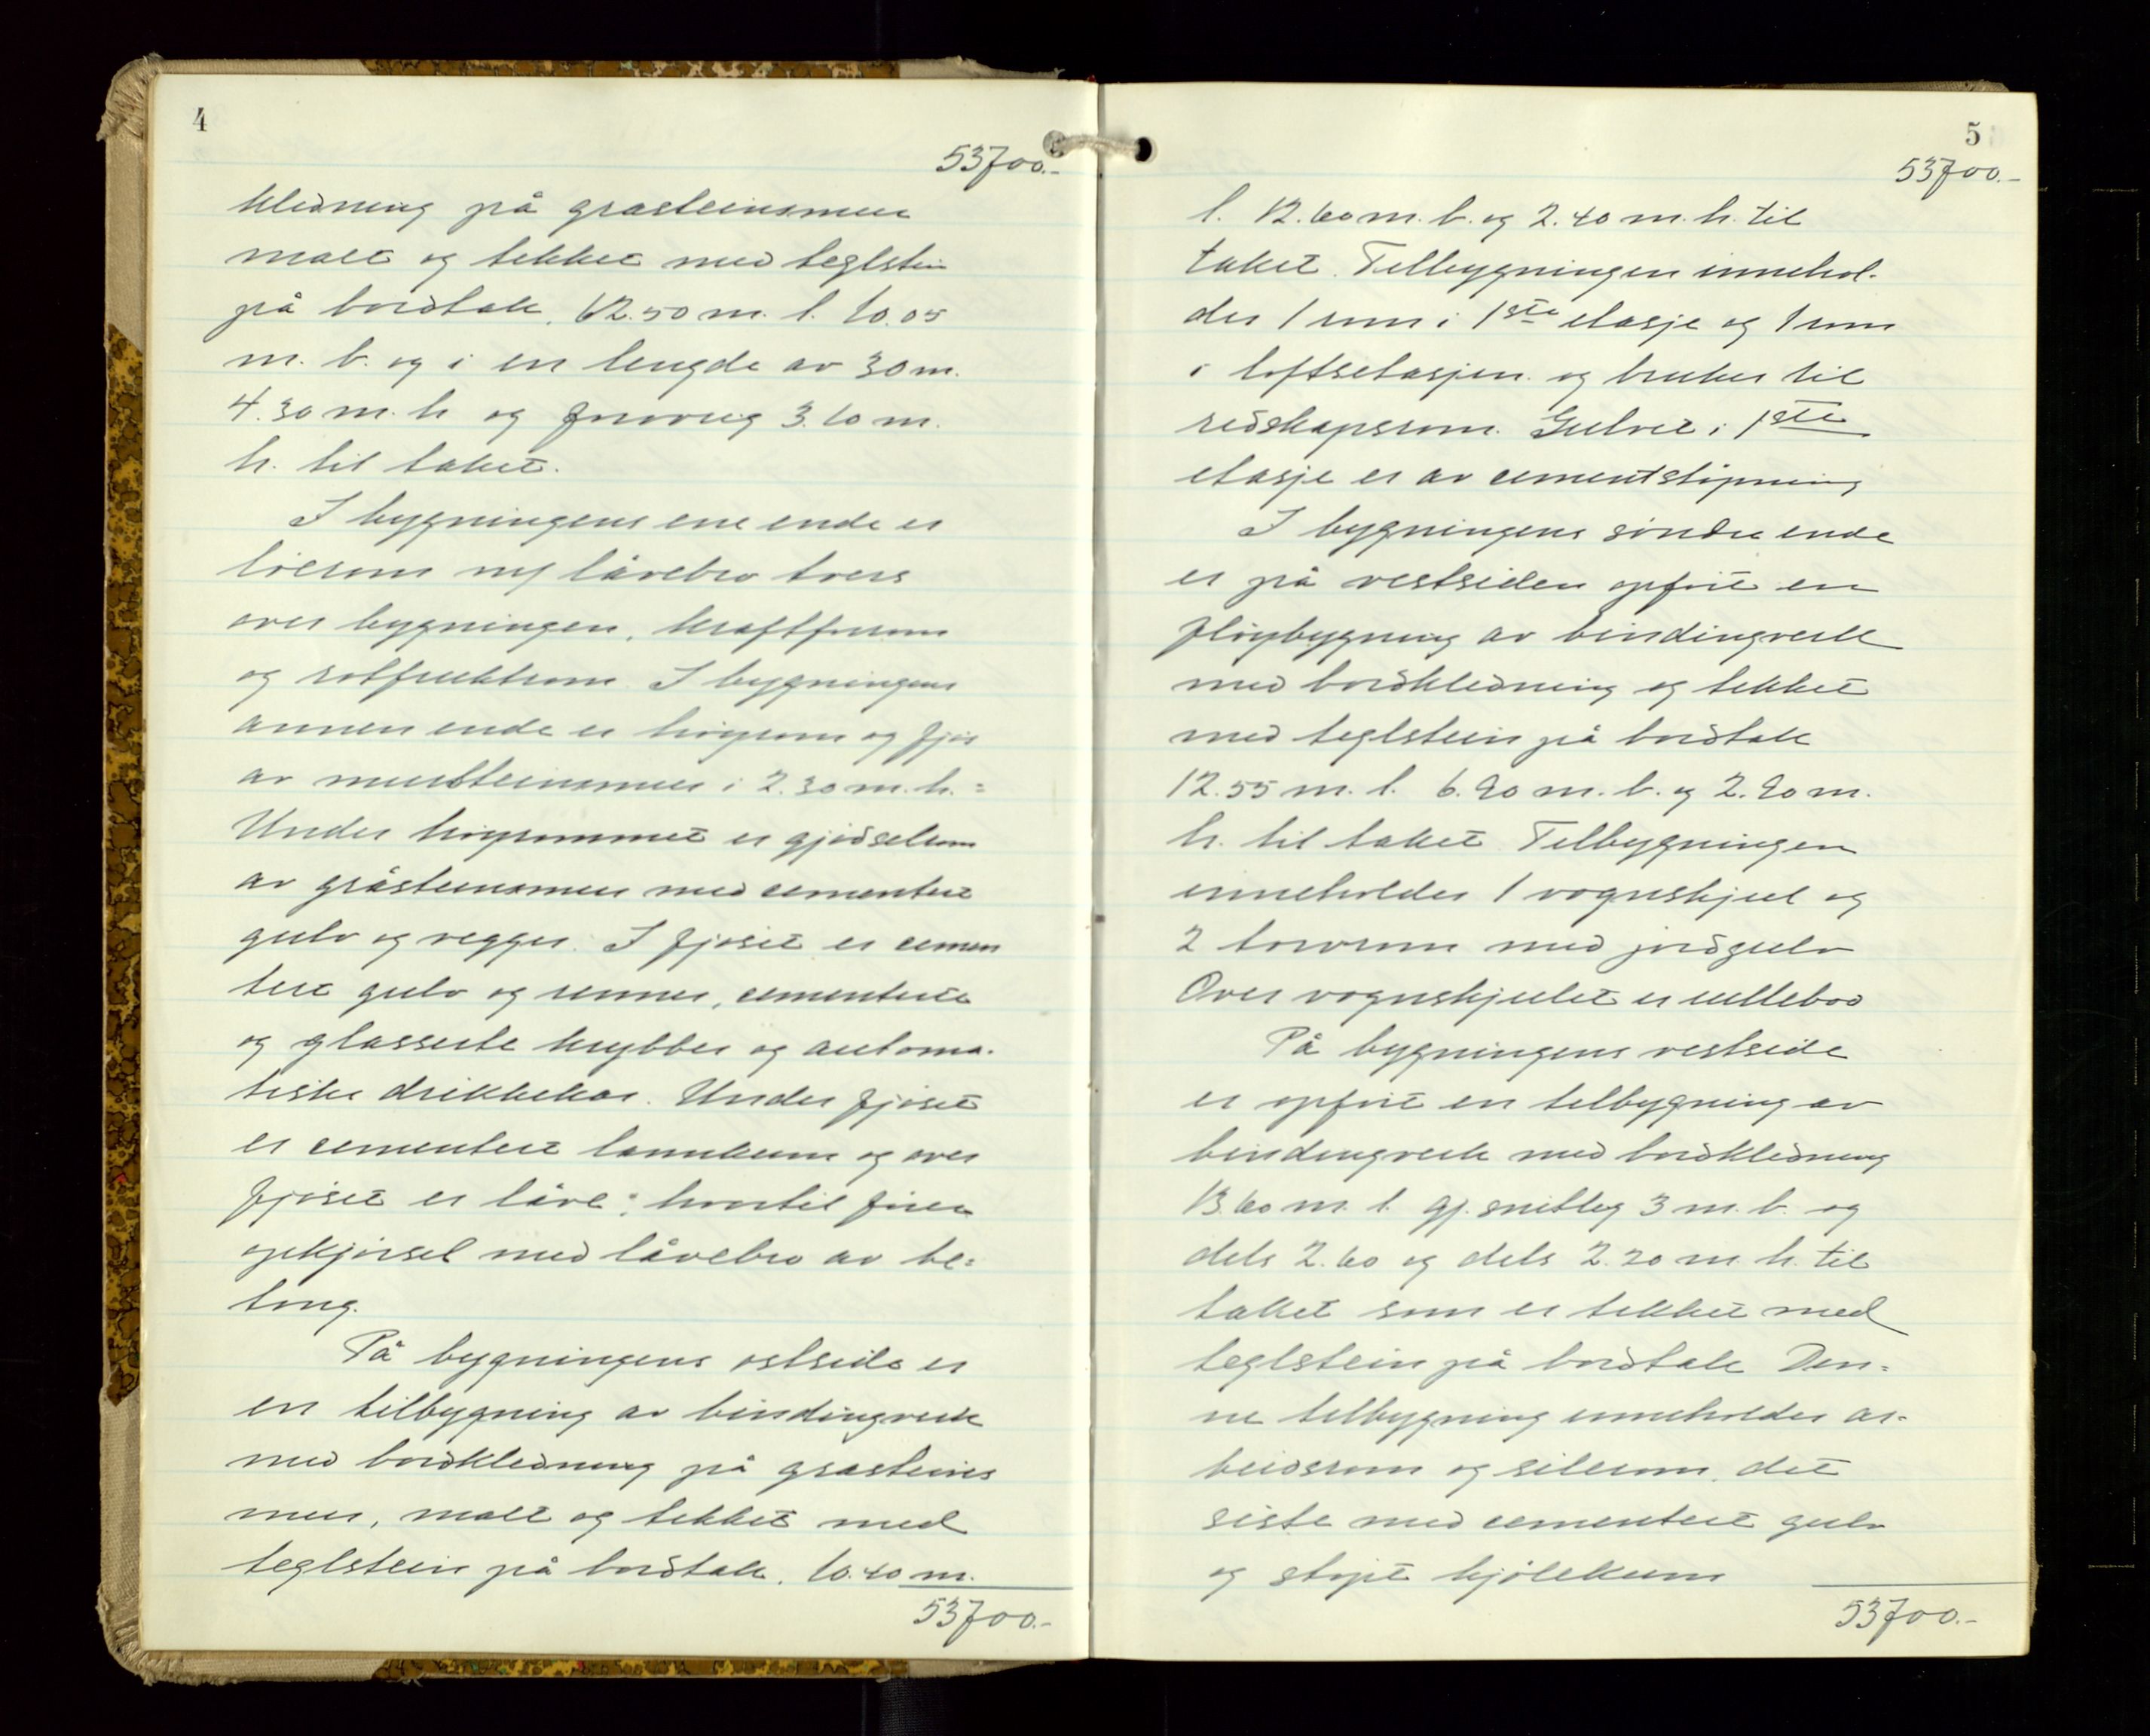 4
53700.-
kledning på grasteinsmur
malt og tekket med teglstein
på bordtak. 62.50 m. l. 10.05
m. b. og i en lengde av 30 m.
4.30 m. h og forøvrig 3.60 m.
h. til taket.
I bygningens ene ende er
löerom m/ låvebro tvers
over bygningen, kraftforrom
og rotfruktrom. I bygningens
annen ende er höyrom og fjös
av mursteinsmur i 2.30 m. h.=
Under höyrommet er gjödselrom
av gråsteinsmur med cementert
gulv og vegger. I fjöset er cemen
tert gulv og renner, cementerte
og glasserte krybber og automa-
tiske drikkekar. Under fjöset
er cementert landkum og over
fjöset er låve, hvortil förer
opkjörsel med låvebro av be=
tong.
På bygningens östside er
en tilbygning av bindingverk
med bordkledning på grasteins
mur, malt og tekket med
teglstein på bordtak. 10.40 m.
53700.-
5
53700.-
l. 12.60 m. b. og 2.40 m. h. til
taket. Tilbygningen innehol-
der 1 rum i 1ste etasje og 1 rum
i loftsetasjen og brukes til
redskapsrom. Gulvet i 1ste
etasje er av cementstöpning
I bygningens söndre ende
er på vestsiden opfört en
flöybygning av bindingverk
med bordkledning og tekket
med teglstein på bordtak
12.55 m. l. 6.90 m. b. og 2.90 m.
h. til taket. Tilbygningen
inneholder 1 vognskjul og
2 torvrum med jordgulv
Over vognskjulet er ullebod
På bygningens vestside
er opfört en tilbygning av
bindingverk med bordkledning
13.60 m. l. gj. snitlig 3 m. b. og
dels 2.60 og dels 2.20 m. h. til
taket som er tekket med
teglstein på bordtak Den=
ne tilbygning inneholder ar-
beidsrom og silerom, det
siste med cementert gulv
og stöpt kjölekum
53700.-